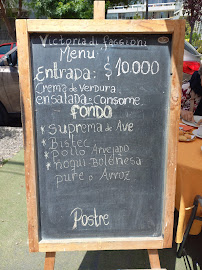 Victoria di Faccioni
Menu
Entrada: $10.000
Crema de Verdura
ensalada - Consome
FONDO
*Suprema de Ave
*Bistec
*Pollo Arvejado
*Ñoqui Boloñesa
pure o Arroz
Postre